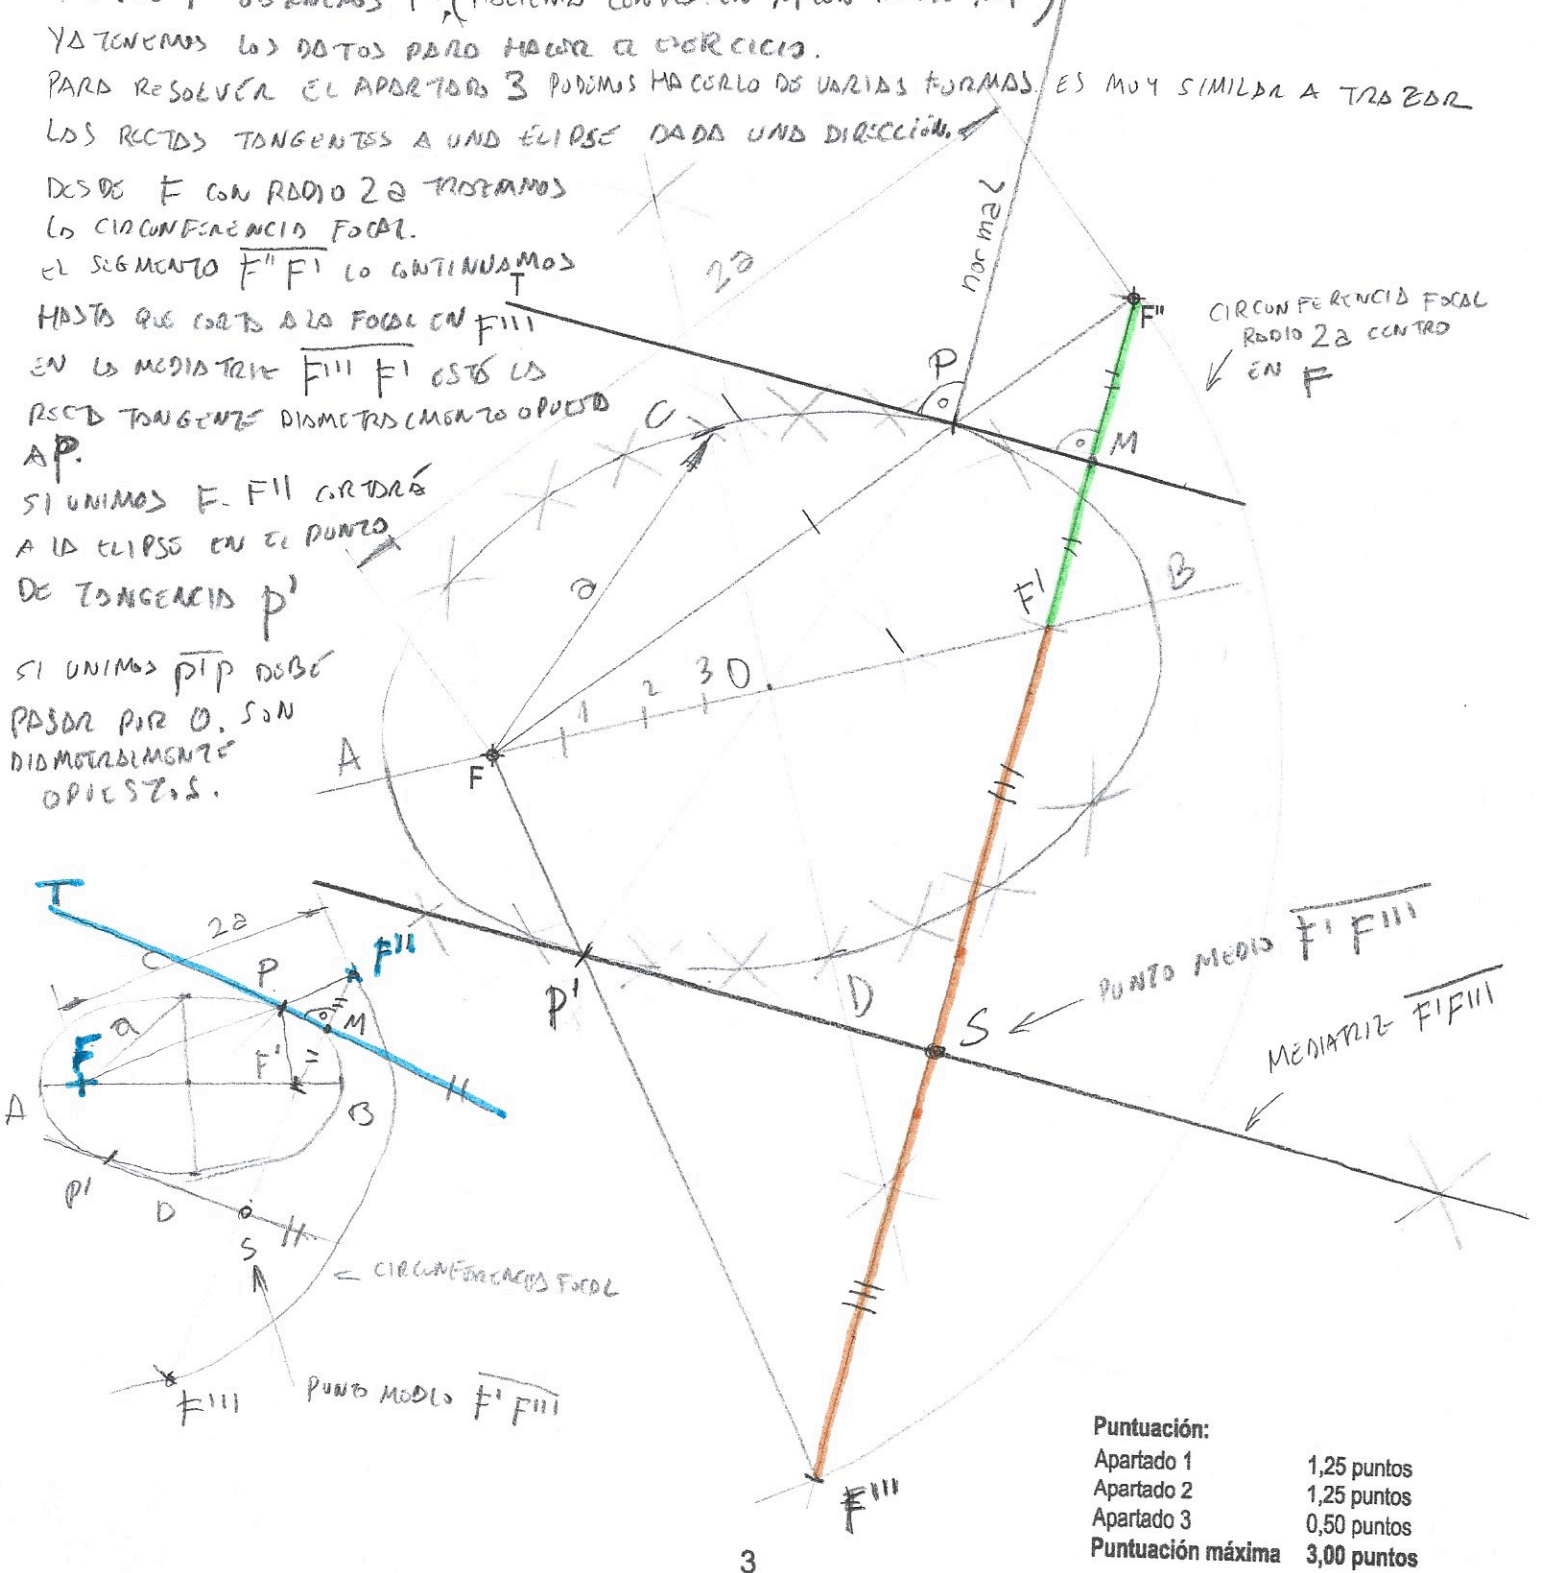 YA TENEMOS LOS DATOS PARA HACER EL EJERCICIO.
PARA RESOLVER EL APARTADO 3 PODEMOS HACERLO DE VARIAS FORMAS. ES MUY SIMILAR A TRAZAR
LAS RECTAS TANGENTES A UNA ELIPSE DADA UNA DIRECCIÓN.
DESDE F CON RADIO 2a TRAZAMOS
LA CIRCUNFERENCIA FOCAL.
EL SEGMENTO F'' F' LO CONTINUAMOS
HASTA QUE CORTA A LA FOCAL EN F'''
EN LA MEDIATRIZ F''' F' ESTÁ LA
RECTA TANGENTE DIAMETRALMENTE OPUESTA
A P.
SI UNIMOS F-F''' CORTARÁ
A LA ELIPSE EN EL PUNTO
DE TANGENCIA P'
SI UNIMOS P'P DEBE
PASAR POR O. SON
DIAMETRALMENTE
OPUESTOS.
2a
normal
T
F''
CIRCUNFERENCIA FOCAL
RADIO 2a CENTRO
EN F
P
C
M
a
F'
B
1 2 3 O
A
F
P'
D
S
PUNTO MEDIO F' F'''
MEDIATRIZ F'F'''
F'''
T
2a
C
P
F'''
a
M
F
F'
A
B
P'
D
S
CIRCUNFERENCIA FOCAL
F'''
PUNTO MEDIO F' F'''
Puntuación:
Apartado 1 1,25 puntos
Apartado 2 1,25 puntos
Apartado 3 0,50 puntos
Puntuación máxima 3,00 puntos
3